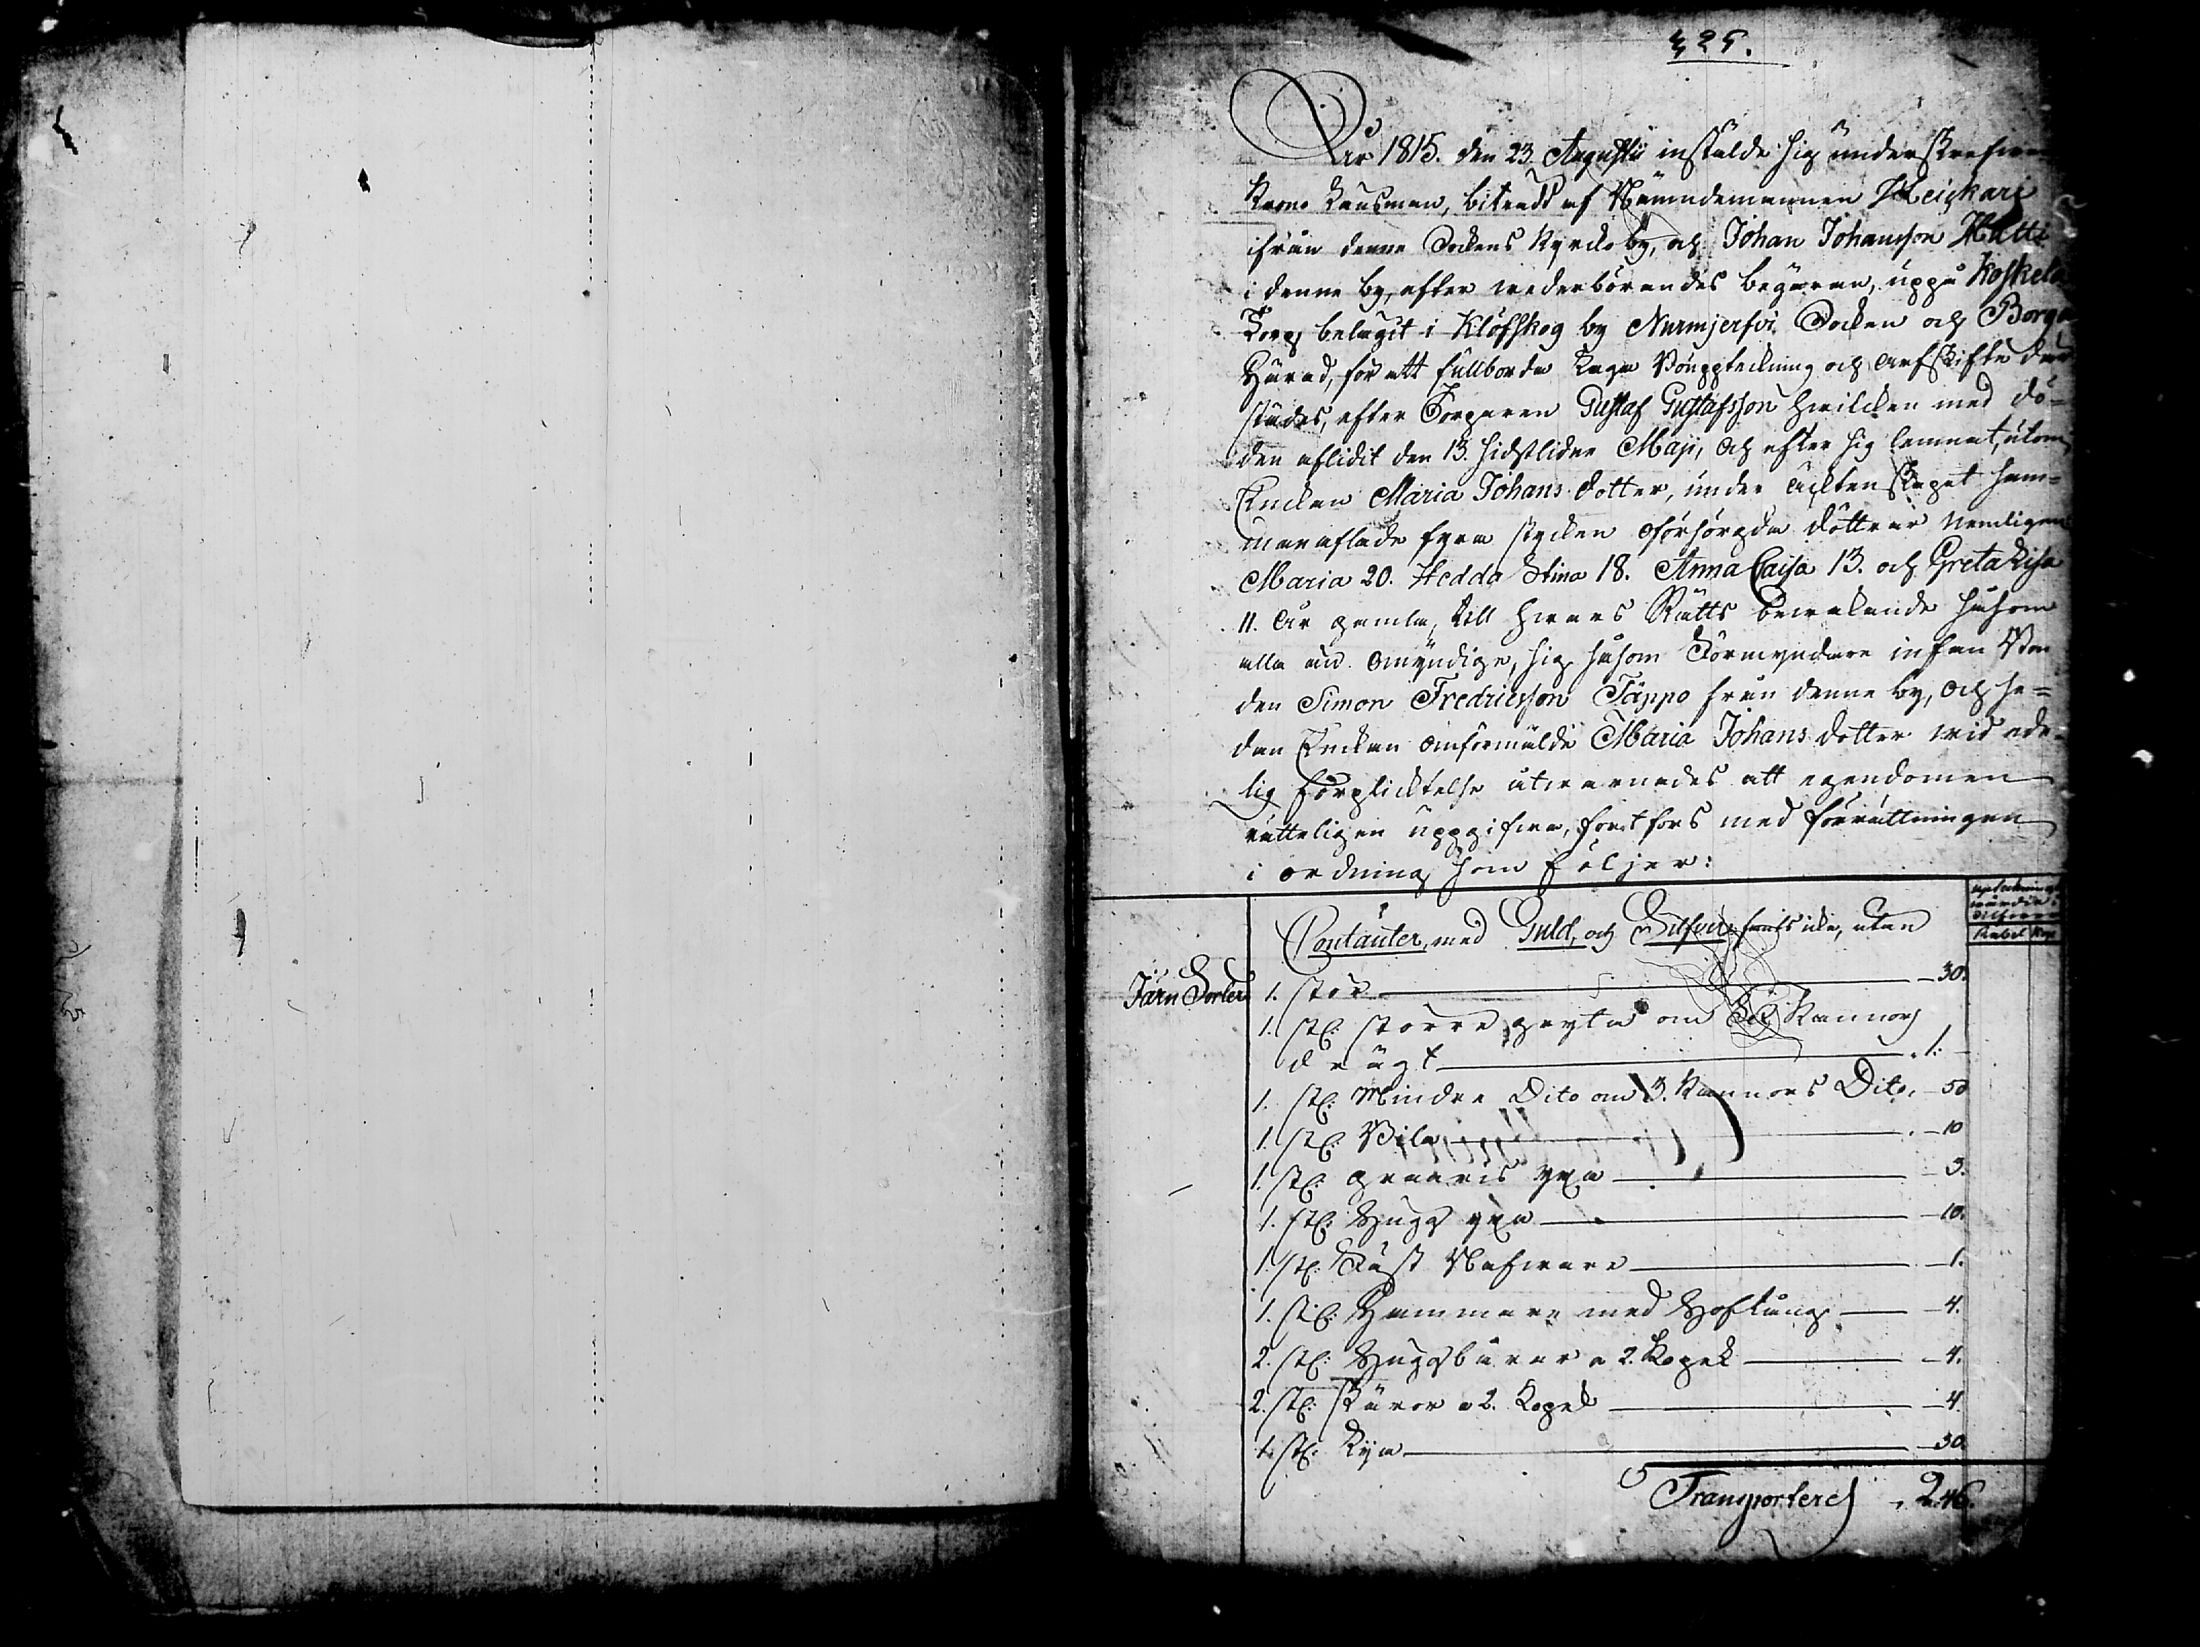 425.
År 1815. den 23. Augustii instälde sig underskrefven
Krono Länsman, biträdd af Nämndemannen Heickari
ifrån denne Sockens Kyrckoby, och Johan Johansson Hatti
i denne by, efter vederbörandes begäran, uppå Koskela
Torp belägit i Klöfskog by Nurmjerfvi Socken och Borgo
Härad, för att fullborda Laga Bouppteckning och Arfskifte där
städes, efter Torparen Gustaf Gustafsson hvilcken med dö-
den aflidit den 13. sidstledne Maji, och efter sig lemnat, utom
Enckan Maria Johans dotter, under Äcktenskapet sam-
manaflade fyra stycken oförsörgda döttrar nemligen
Maria 20. Hedda Stina 18. Anna Caisa 13. och Greta Lisa
11. År gamla, till hvars Rätts bevakande såsom
alla än omyndige, sig såsom Förmyndare infan Bon
den Simon Fredricsson Täppo från denne by, och se-
dan Enckan ominförmälde Maria Johans dotter vid ede-
lig förplicktelse utvarnades att egendomen
rätteligen uppgifva, fortfors med förrättningen
i ordning som följer:
uptecknings
värdie i
Silfver
Rubel Kop.
Contanter, med Guld, och Silfver, fants icke, utan
Järn Sorter 1. stör 30.
1. st: större gryta om Sex Kannors
drägt 1.
1. st: Mindre Dito om 3. Kannors Dito. 50
1. st: Bila 10
1. st: yxa 3.
1. st: Hugg yxa 10.
1. st: Nafvare 1.
1. st: Hammare med Hoftång 4.
2. st: a 2. Kopek 4.
2. st: Skäror a 2. Kopek 4.
1. st: Lya 30.
Transporteres 2.46.